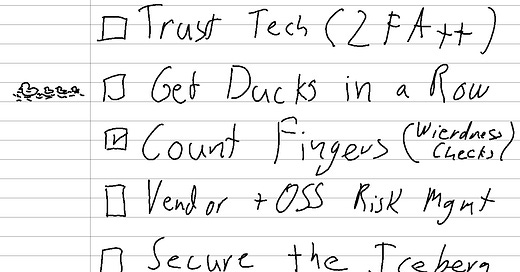 Trust Tech (2FA++)
Get Ducks in a Row
Count Fingers (Wierdness Checks)
Vendor + OSS Risk Mgmt
Secure the Iceberg